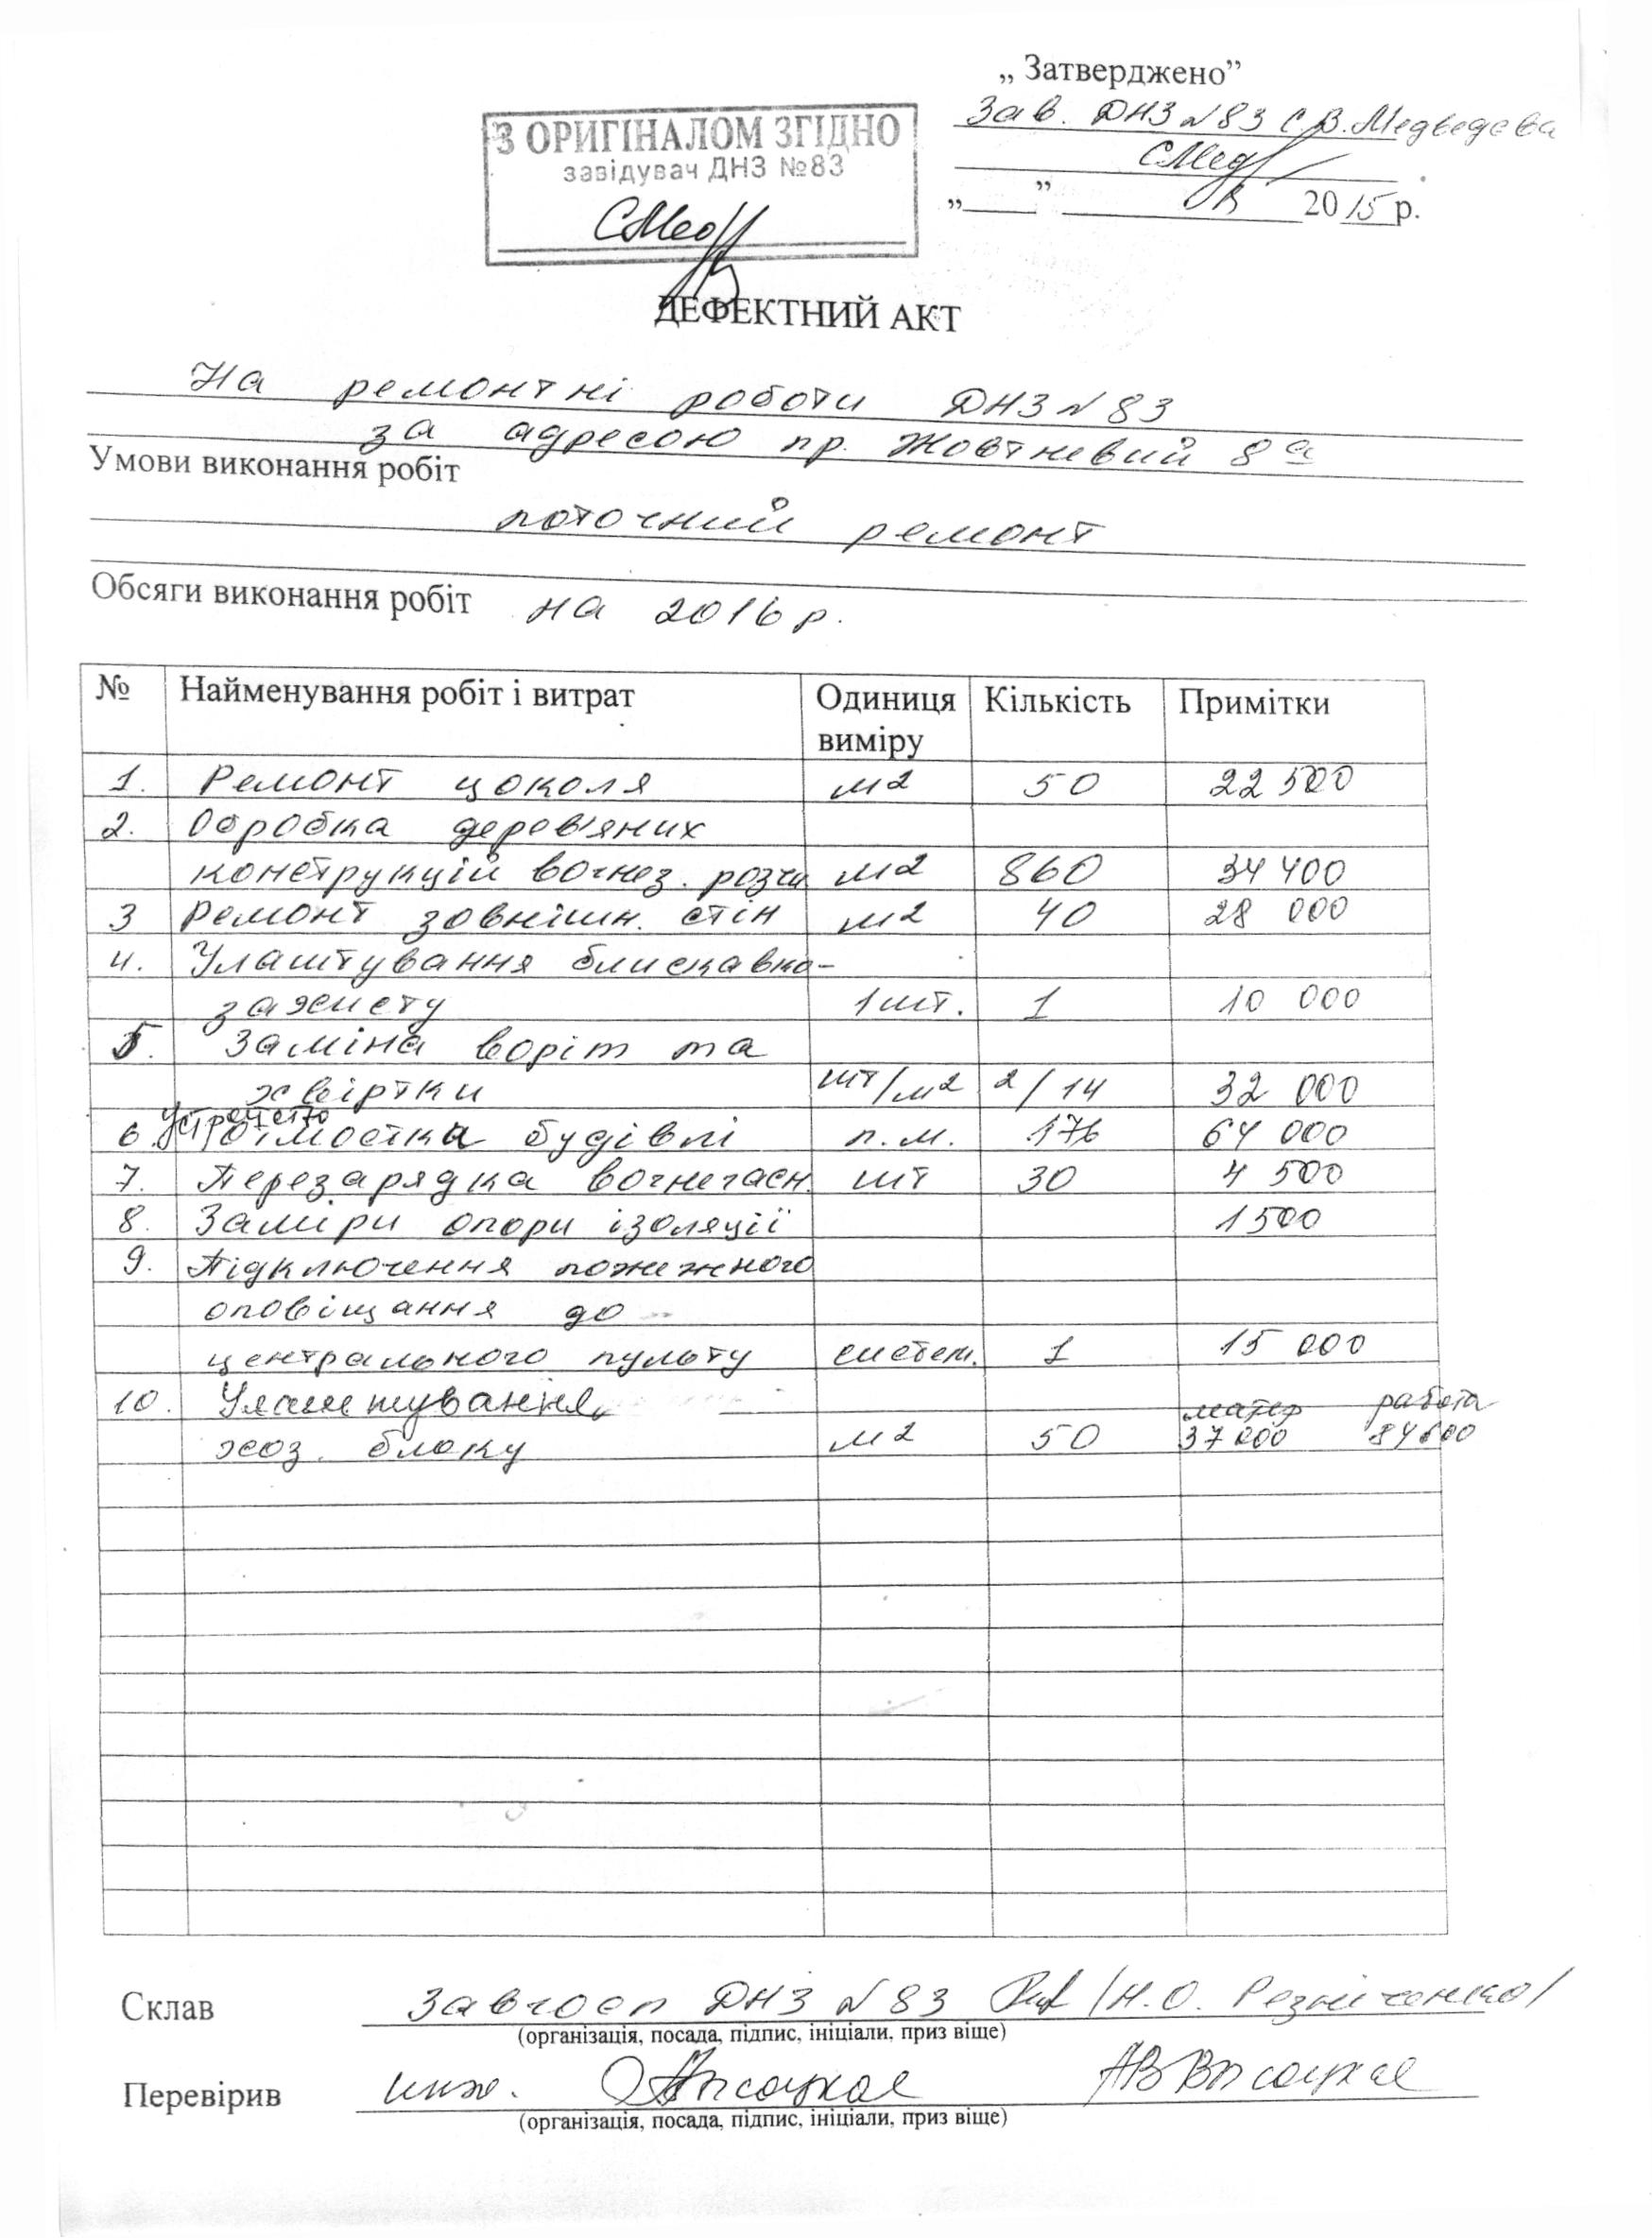 „ Затверджено”
Зав. ДНЗ №83 С.В.Медведєва
„ ” 2015 р.
З ОРИГІНАЛОМ ЗГІДНО
завідувач ДНЗ №83
ДЕФЕКТНИЙ АКТ
На ремонтні роботи ДНЗ №83
за адресою пр. Жовтневий 8а
Умови виконання робіт
поточний ремонт
Обсяги виконання робіт на 2016 р.
№ Найменування робіт і витрат Одиниця виміру Кількість Примітки
1. Ремонт цоколя м2 50 22 500
2. Обробка дерев'яних
конструкцій вогнез. розчи м2 860 34 400
3 Ремонт зовнішн. стін м2 40 28 000
4. Улаштування блискавко-
захисту 1шт. 1 10 000
5. Заміна воріт та
хвіртки шт/м2 2/14 32 000
6. будівлі п.м. 176 64 000
7. Перезарядка вогнегасн. шт 30 4 500
8. Заміри опори ізоляції 1500
9. Підключення пожежного
оповіщання до
центрального пульту систем. 1 15 000
10. Улаштування матер работа
хоз. блоку м2 50 37 000 84 000
Склав Завгосп ДНЗ №83 /Н.О. Резніченко/
(організація, посада, підпис, ініціали, приз віще)
Перевірив инж. АВ Высоцкая
(організація, посада, підпис, ініціали, приз віще)